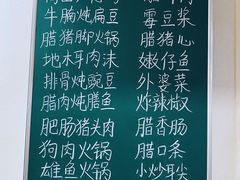 牛胸炖扁豆
霉豆浆
腊猪脚火锅
腊猪心
地木耳肉沫
嫩仔鱼
排骨炖豌豆
外婆菜
腊肉炖腊鱼
炸辣椒
肥肠猪头肉
腊香肠
狗肉火锅
腊口条
雄鱼火锅
小炒耳尖